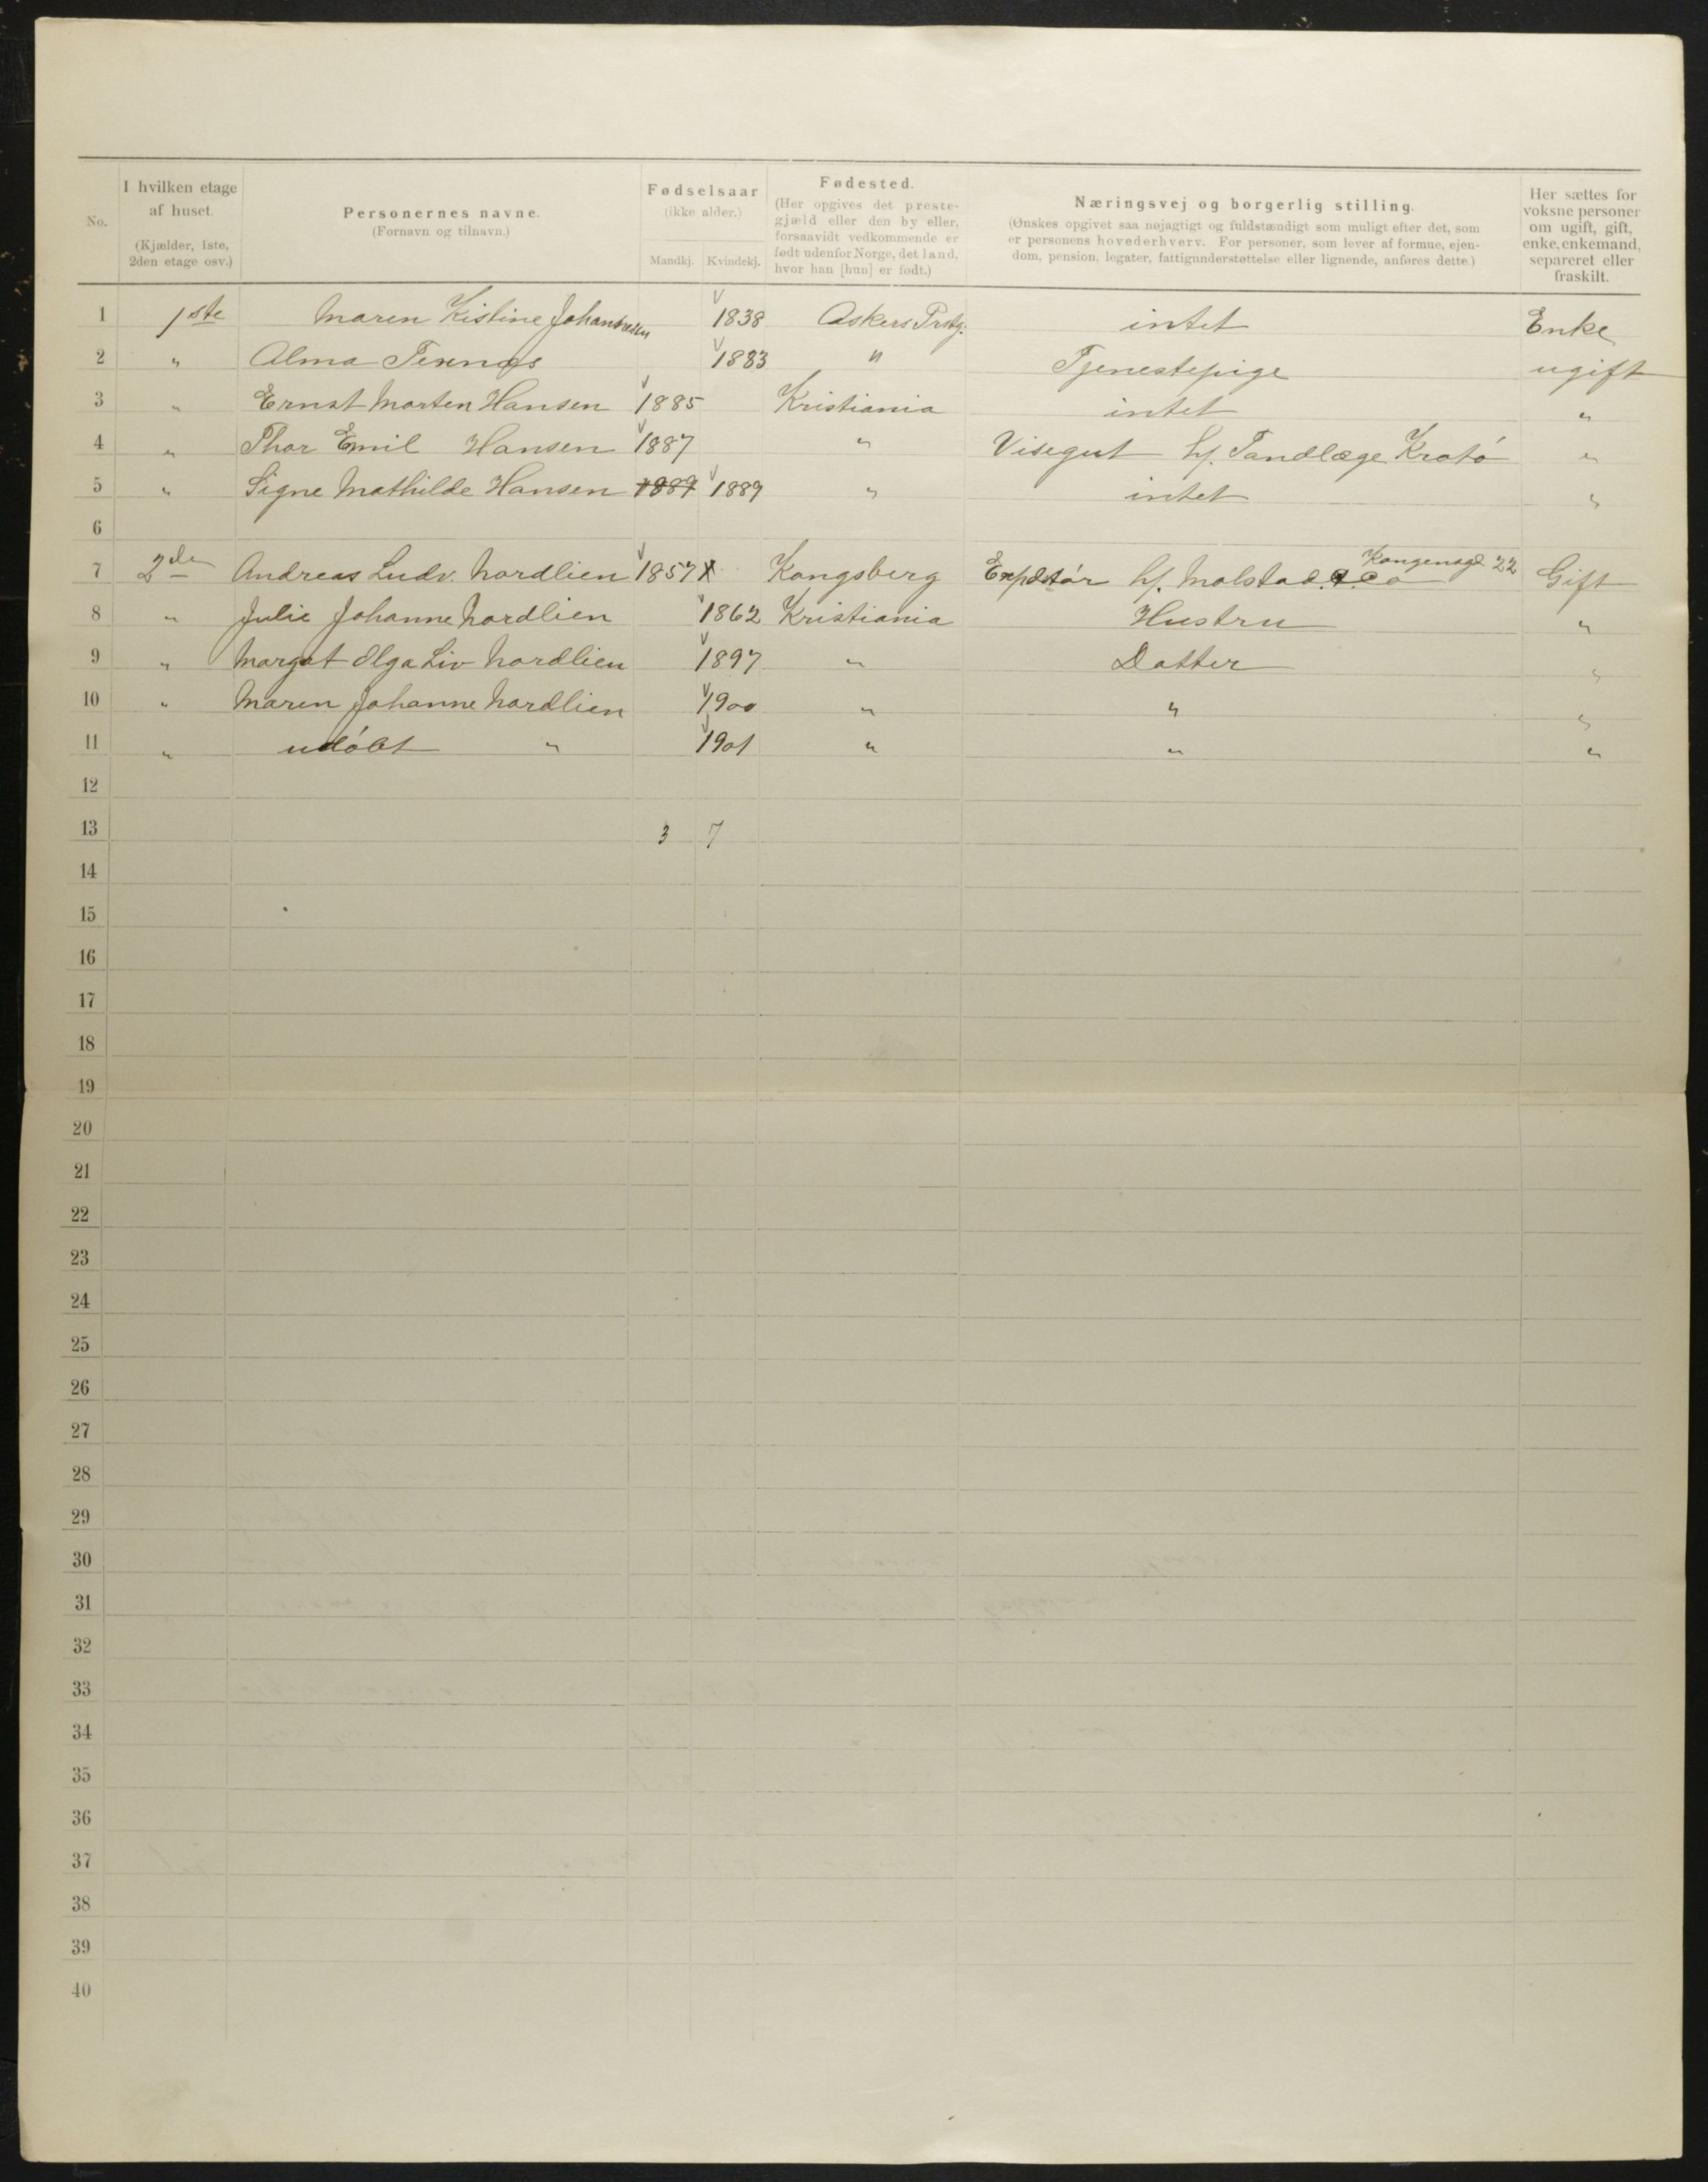 No.
I hvilken etage
af huset.
(Kjælder, 1ste,
2den etage osv.)
Personernes navne.
(Fornavn og tilnavn.)
Fødselsaar
(ikke alder.)
Mandkj. Kvindekj.
Fødested.
(Her opgives det preste-
gjæld eller den by eller,
forsaavidt vedkommende er
født udenfor Norge, det land,
hvor han [hun] er født.)
Næringsvej og borgerlig stilling.
(Ønskes opgivet saa nøjagtigt og fuldstændigt som muligt efter det, som
er personens hovederhverv. For personer, som lever af formue, ejen-
dom, pension, legater, fattigunderstøttelse eller lignende, anføres dette.)
Her sættes for
voksne personer
om ugift, gift,
enke, enkemand,
separeret eller
fraskilt.
1 1ste Maren Kistine 1838 Askers Prstg. intet Enke
2 " Alma 1883 " Tjenestepige ugift
3 " Ernst Morten Hansen 1885 Kristiania intet "
4 " Thor Emil Hansen 1887 " Visegut hj. Tandlæge "
5 " Signe Mathilde Hansen 1889 1889 " intet "
6
7 2den Andreas Ludv. Nordlien 1857 Kongsberg hj. Molstad & Co Kongensgd 22 Gift
8 " Julie Johanne Nordlien 1862 Kristiania Hustru "
9 " Margot Olga Liv Nordlien 1897 " Datter "
10 " Maren Johanne Nordlien 1900 " " "
11 " udøbt " 1901 " " "
12
13 3 7
14
15
16
17
18
19
20
21
22
23
24
25
26
27
28
29
30
31
32
33
34
35
36
37
38
39
40